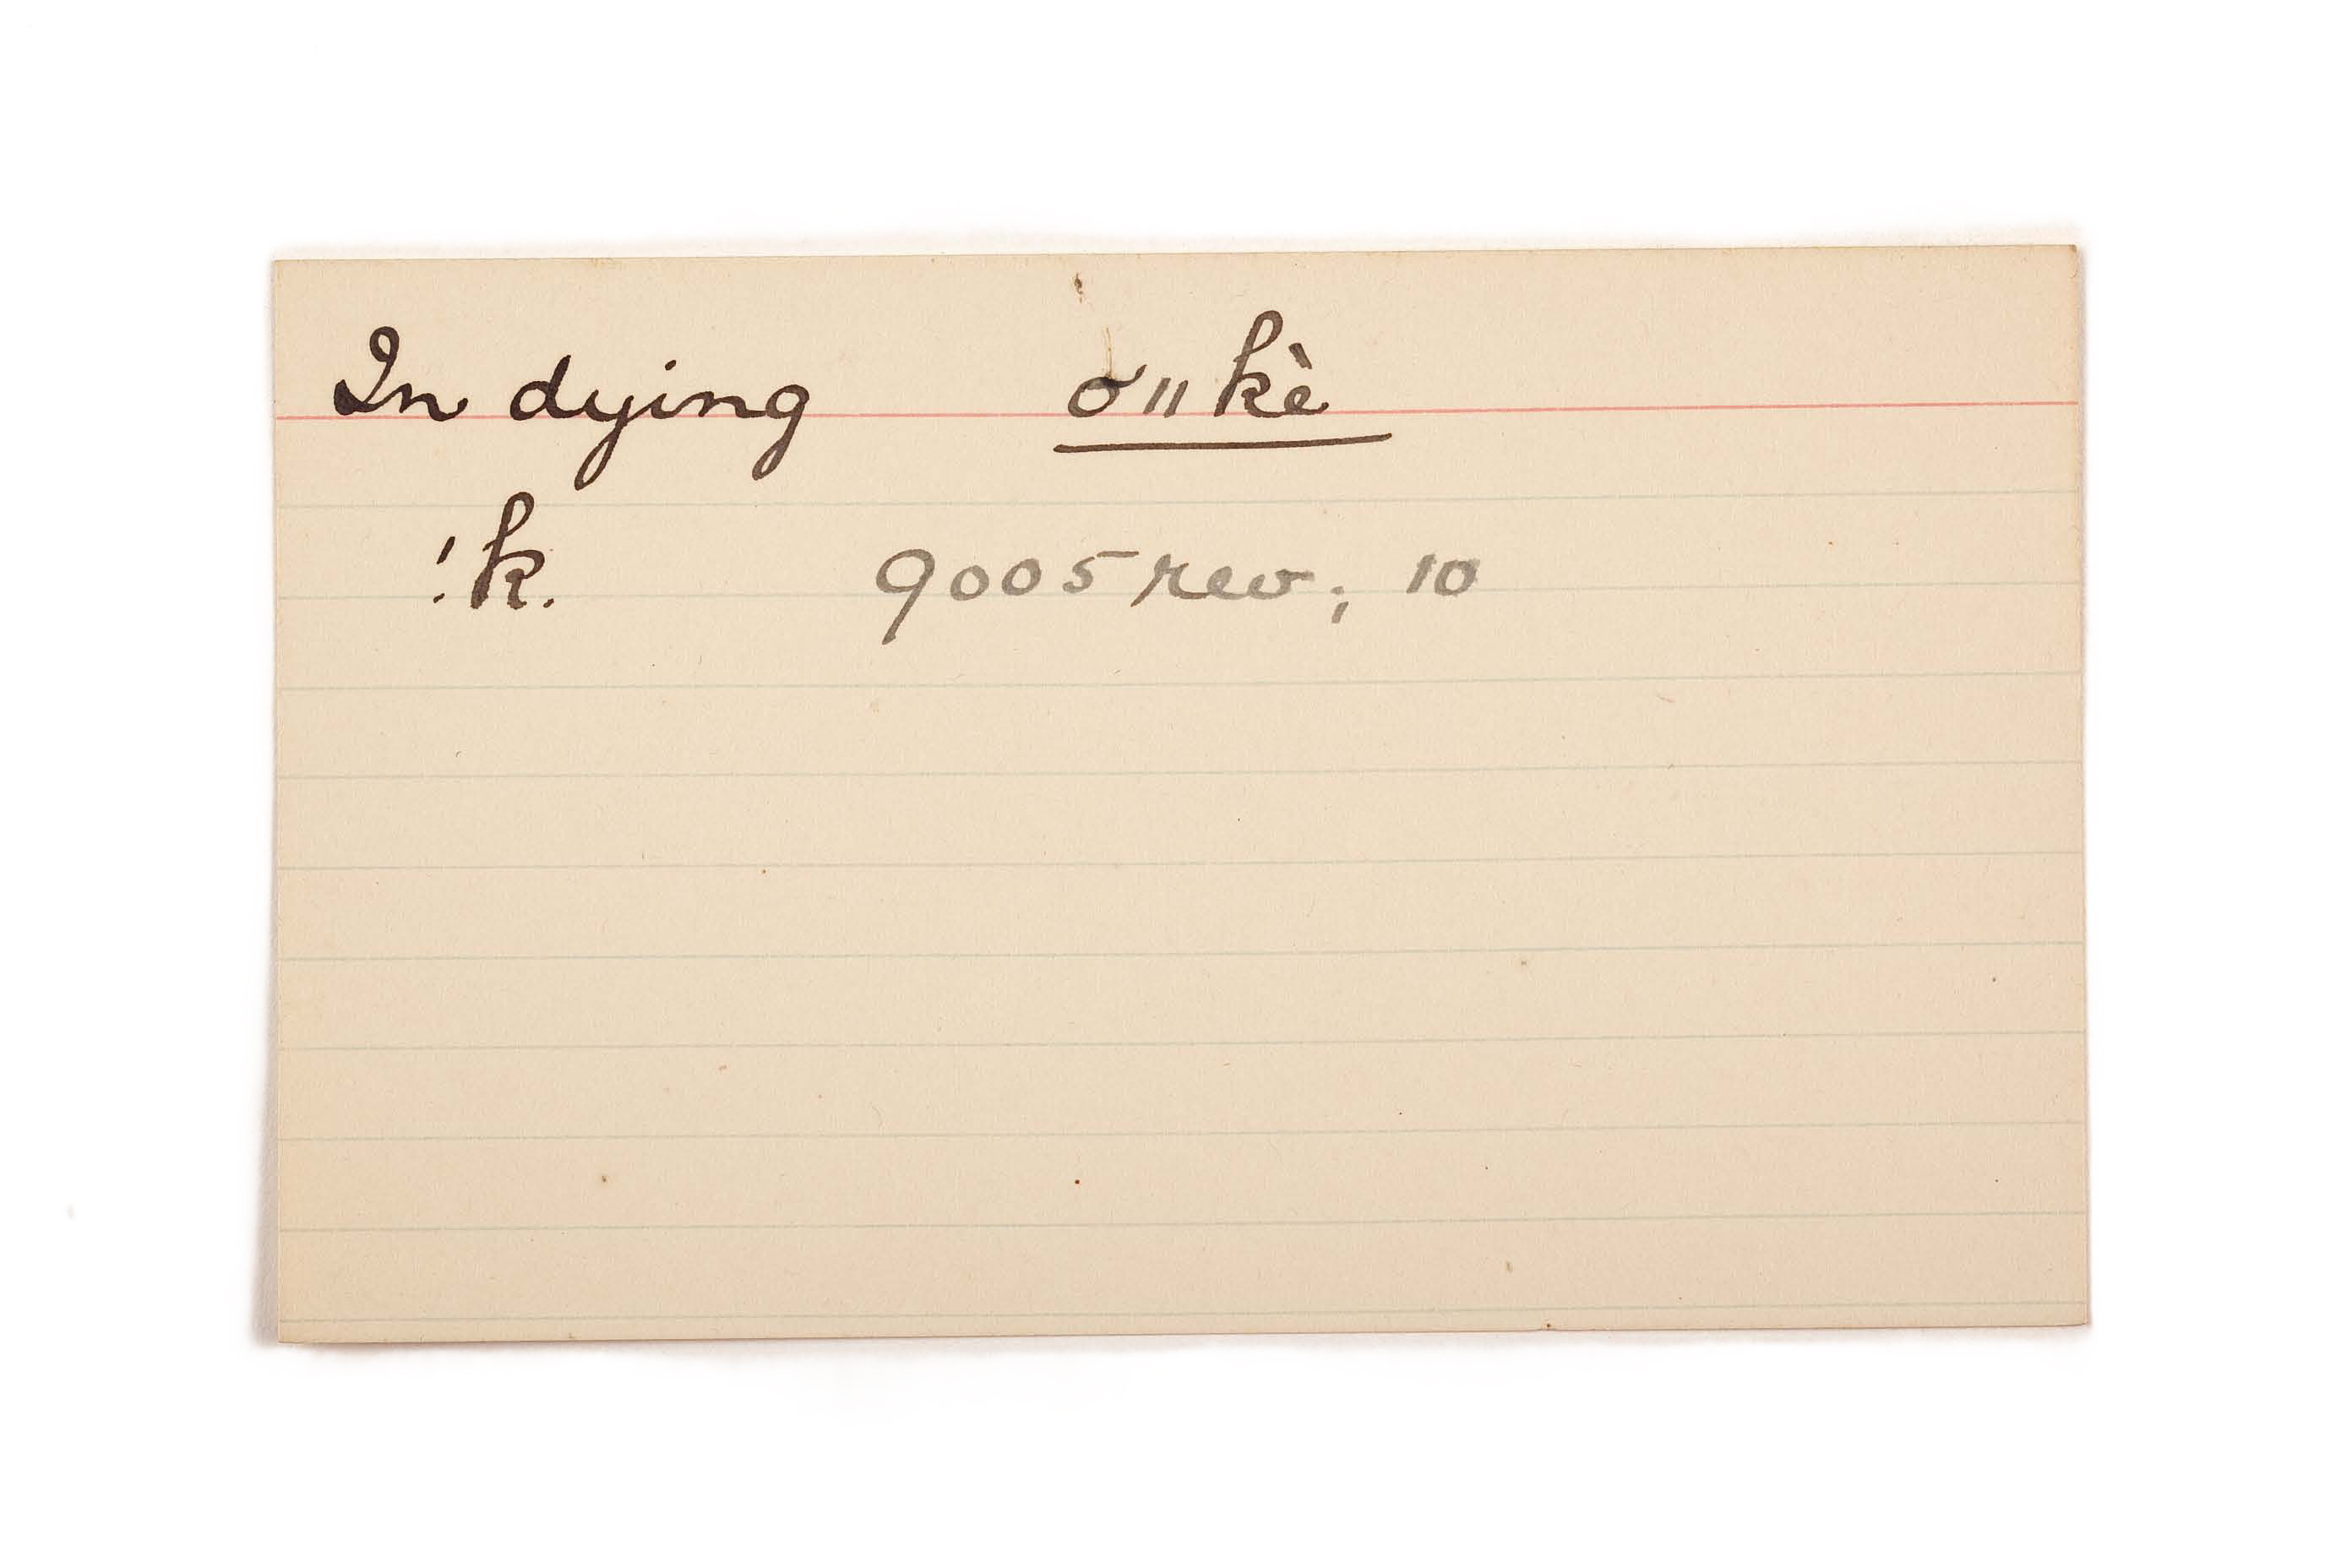 In dying o〃kè
!k. 9005 rev; 10